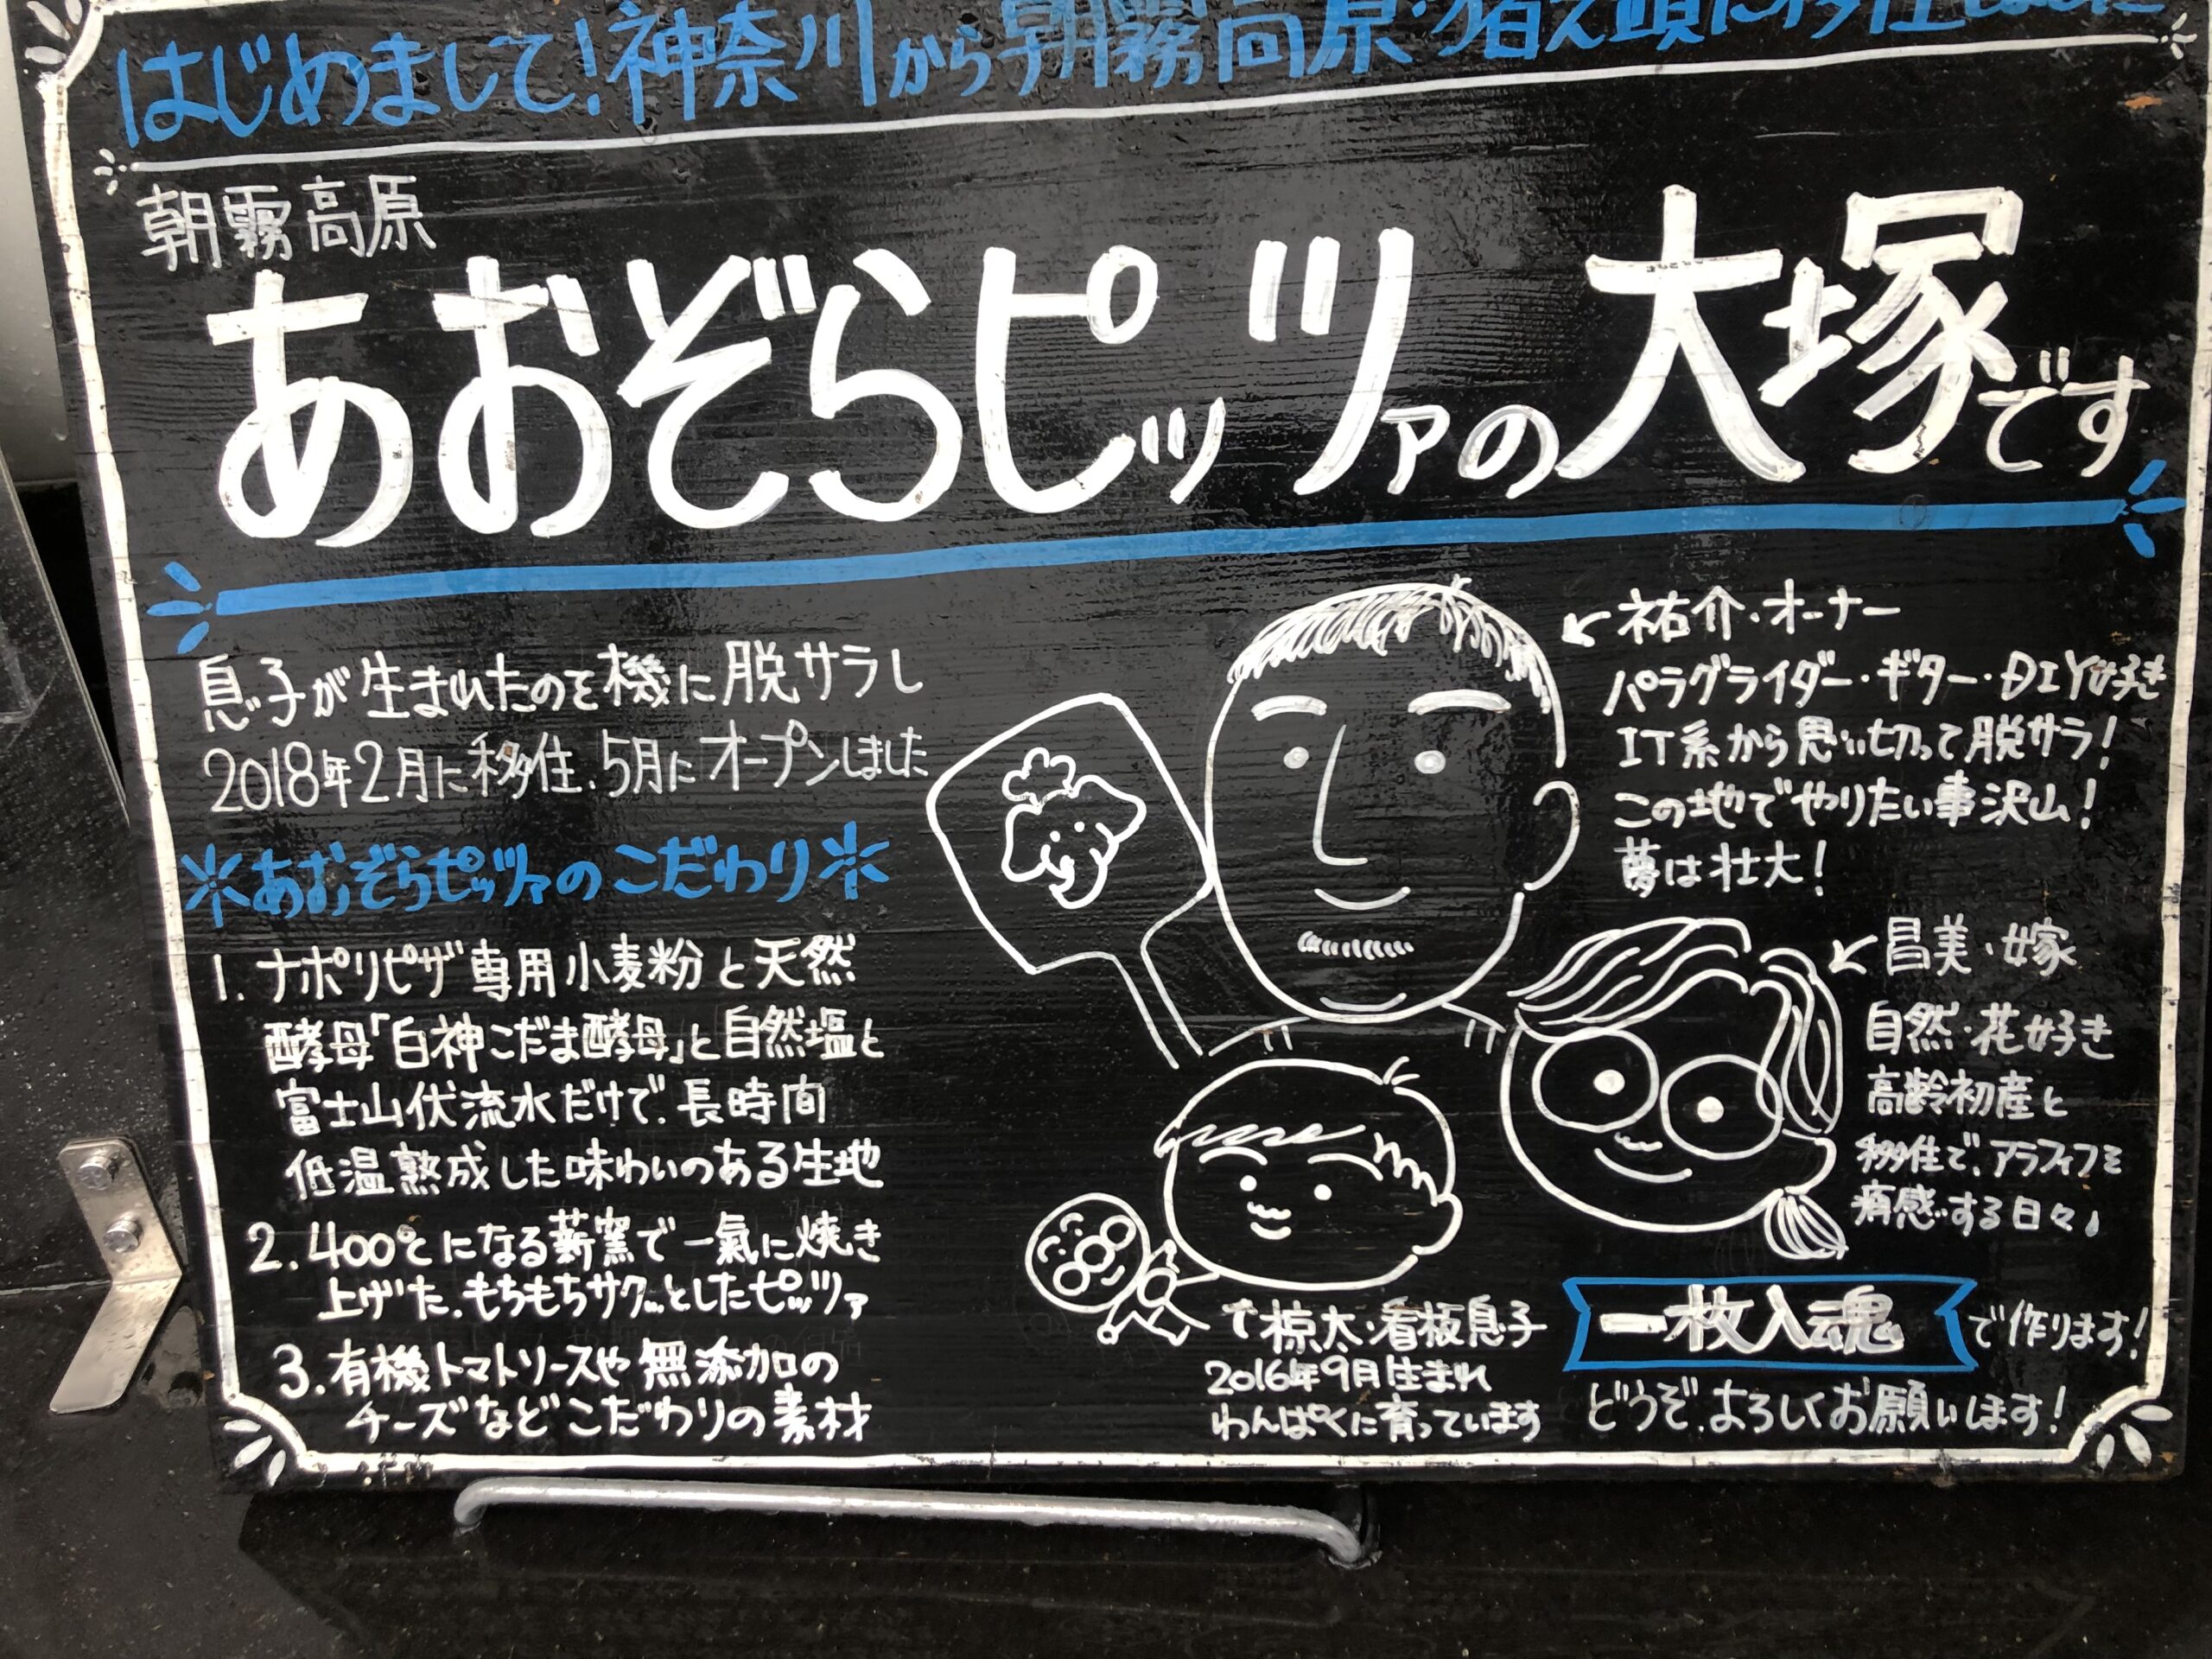 はじめまして!神奈川から朝霧高原・猪之頭に移住しました
朝霧高原
あおぞらピッツァの大塚です
息子が生まれたのを機に脱サラし
2018年2月に移住、5月にオープンしました
＊あおぞらピッツァのこだわり＊
1. ナポリピザ専用小麦粉と天然
酵母「白神こだま酵母」と自然塩と
富士山伏流水だけで、長時間
低温熟成した味わいのある生地
2. 400℃になる薪窯で一氣に焼き
上げた、もちもちサクッとしたピッツァ
3. 有機トマトソースや無添加の
チーズなどこだわりの素材
祐介・オーナー
パラグライダー・ギター・DIY好き
IT系から思い切って脱サラ!
この地でやりたい事沢山!
夢は壮大!
昌美・嫁
自然・花好き
高齢初産と
移住で、アラフィフを
痛感する日々♪
椋太・看板息子
2016年9月生まれ
わんぱくに育っています
一枚入魂で作ります!
どうぞ、よろしくお願いします!